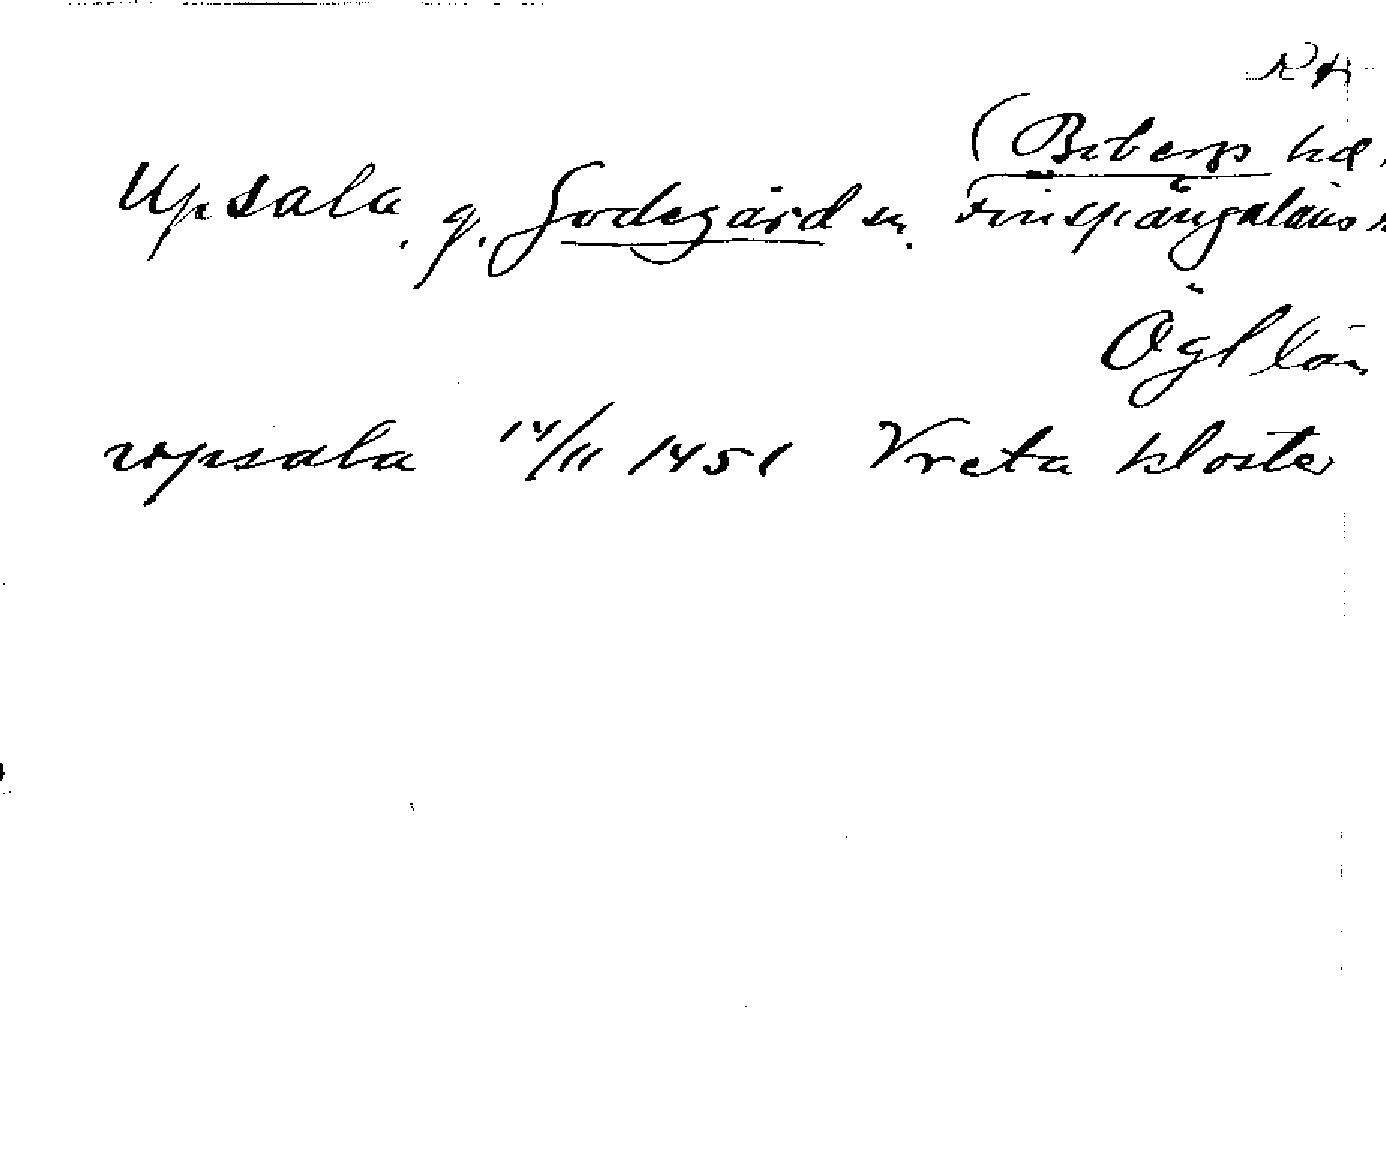 (Bobergs hd.
Upsala, g. Godegård sn. Finspångaläns
Ögl län
vpsala 14/11 1451 Vreta kloster